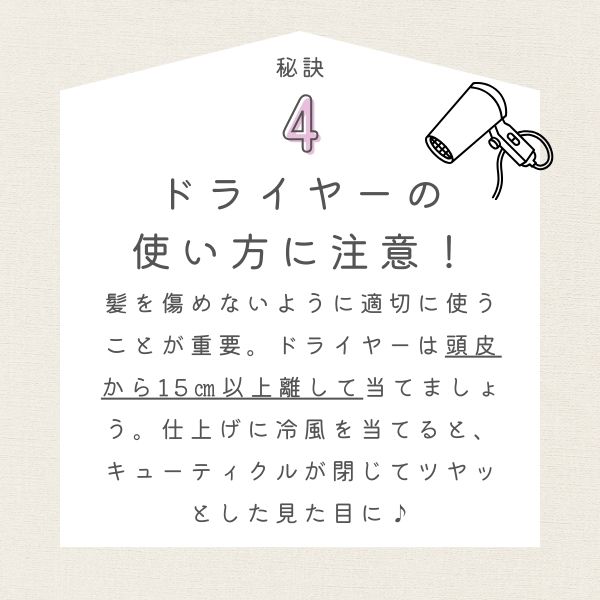 秘訣
4
ドライヤーの
使い方に注意！
髪を傷めないように適切に使う
ことが重要。ドライヤーは頭皮
から15㎝以上離して当てましょ
う。仕上げに冷風を当てると、
キューティクルが閉じてツヤッ
とした見た目に♪